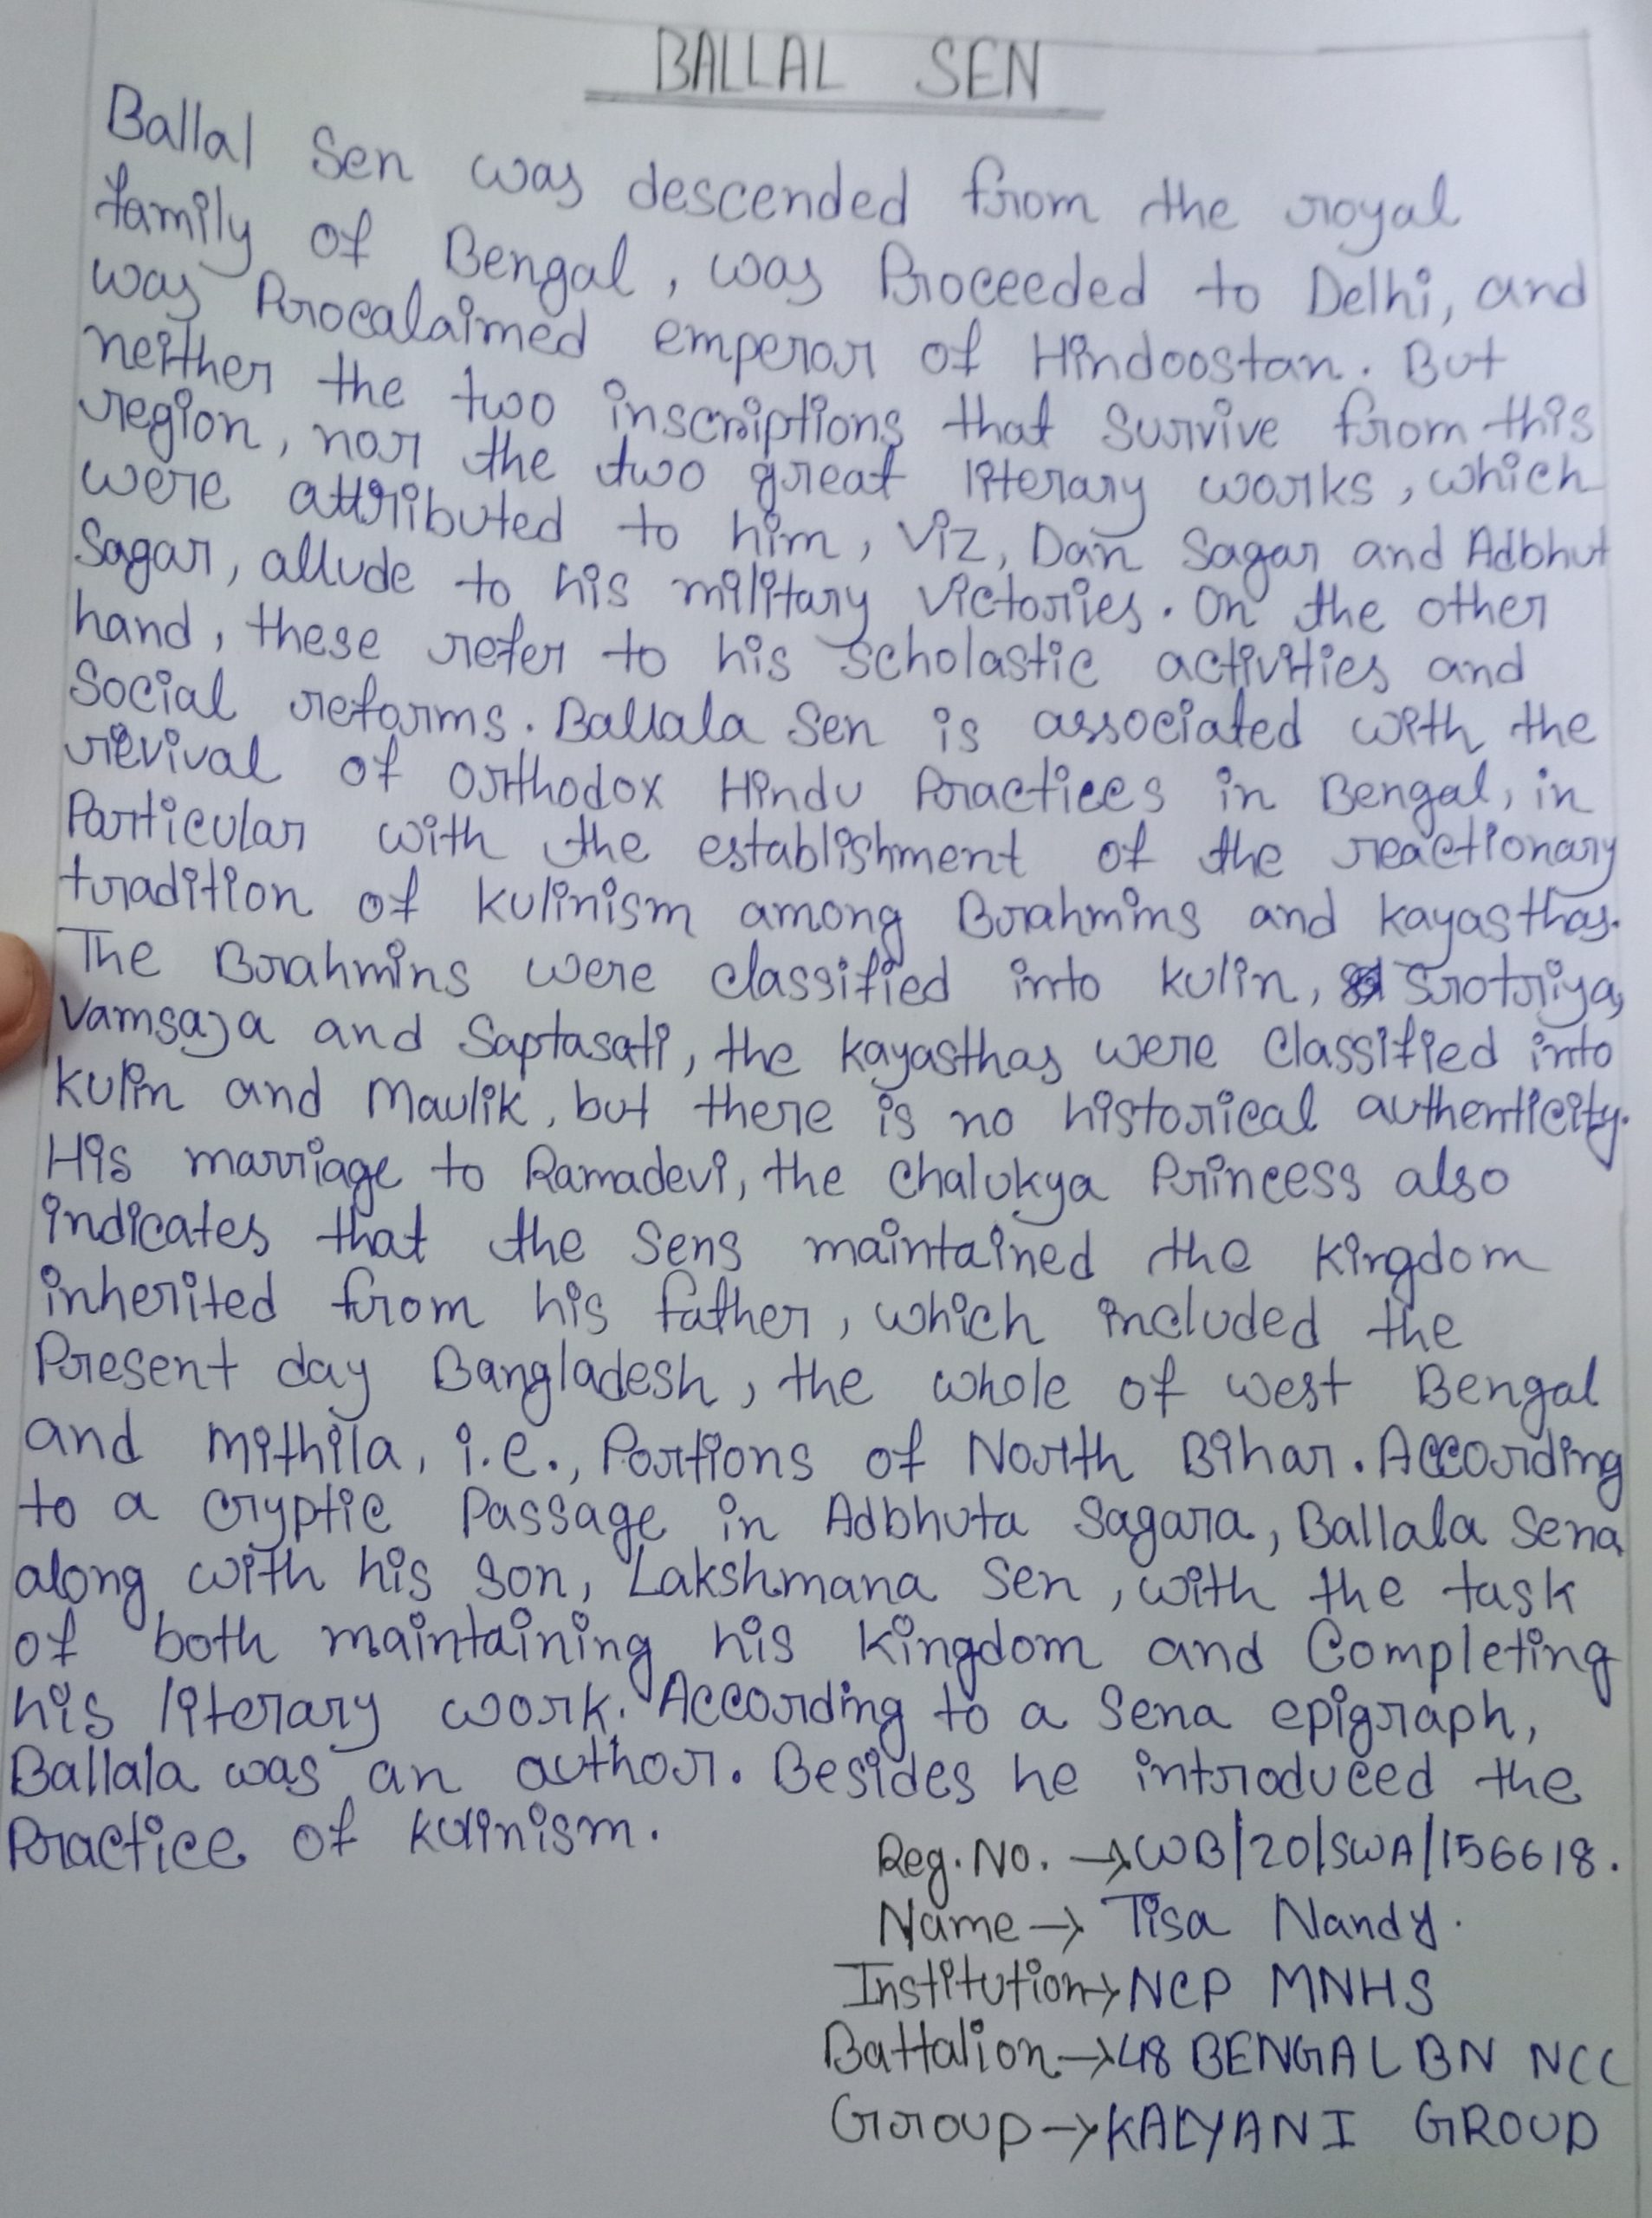 BALLAL SEN
Ballal Sen was descended from the royal
family of Bengal, was Proceeded to Delhi, and
was Procalaimed emperor of Hindoostan. But
neither the two inscriptions that survive from this
region, nor the two great literary works, which
were attributed to him, Viz, Dan Sagar and Adbhut
Sagar, allude to his military victories. On the other
hand, these refer to his scholastic activities and
Social reforms. Ballala Sen is associated with the
revival of orthodox Hindu Practices in Bengal, in
Particular with the establishment of the reactionary
tradition of kulinism among Brahmins and kayasthas.
The Brahmins were classified into kulin, Srotriya,
Vamsaja and Saptasati, the kayasthas were classified into
kulin and Maulik, but there is no historical authenticity.
His marriage to Ramadevi, the chalukya Princess also
indicates that the Sens maintained the kingdom
inherited from his father, which included the
Present day Bangladesh, the whole of west Bengal
and Mithila, i.e., Portions of North Bihar. According
to a cryptic Passage in Adbhuta Sagara, Ballala Sena
along with his son, Lakshmana Sen, with the task
of both maintaining his kingdom and Completing
his literary work. According to a Sena epigraph,
Ballala was an author. Besides he introduced the
Practice of kulinism.
Reg. No. → WB/20/SWA/156618.
Name → Tisa Nandy.
Institution → NCP MNHS
Battalion → 48 BENGAL BN NCC
Group → KALYANI GROUP